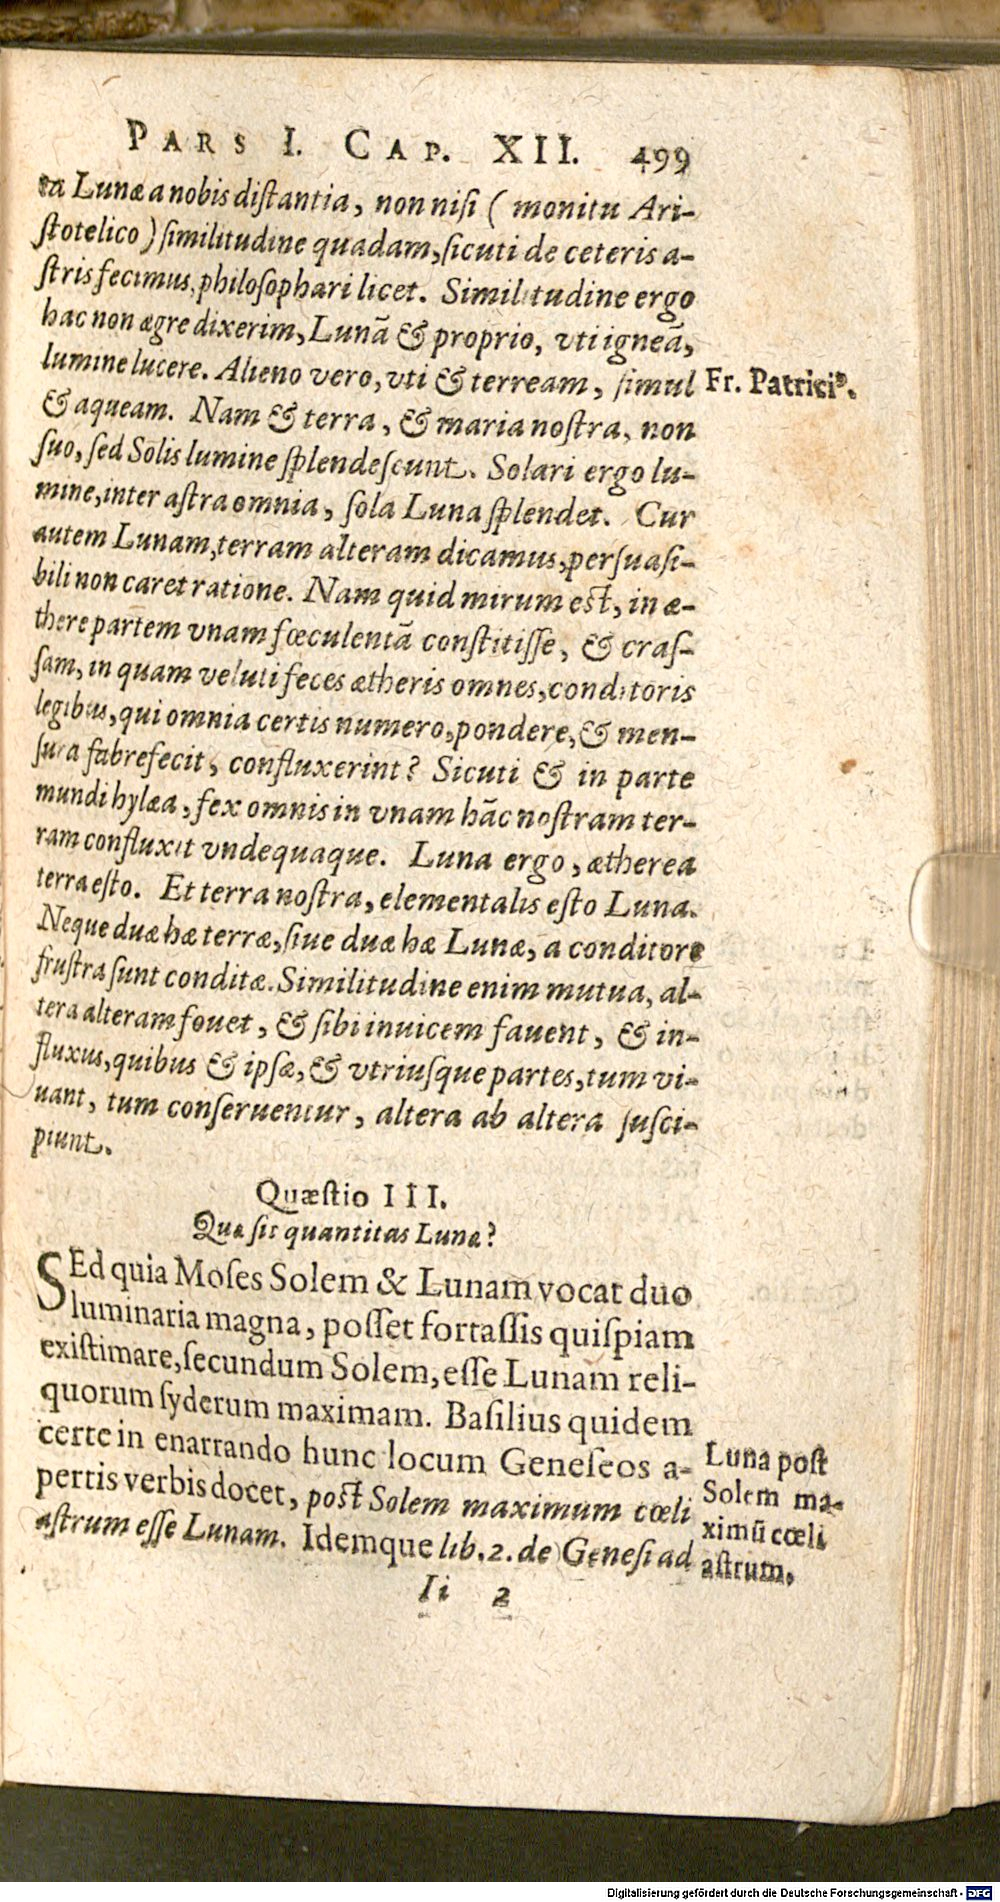 PARS I. CAP. XII. 499
ta Lunæ a nobis distantia, non nisi ( monitu Ari-
stotelico ) similitudine quadam, sicuti de ceteris a-
stris fecimus, philosophari licet. Similitudine ergo
hac non ægre dixerim, Lunā & proprio, vti igneā,
lumine lucere. Alieno vero, vti & terream, simul
& aqueam. Nam & terra, & maria nostra, non
suo, sed Solis lumine splendescunt. Solari ergo lu-
mine, inter astra omnia, sola Luna splendet. Cur
autem Lunam, terram alteram dicamus, persuasi-
bili non caret ratione. Nam quid mirum est, in æ-
there partem vnam fœculentā constitisse, & cras-
sam, in quam veluti feces ætheris omnes, conditoris
legibus, qui omnia certis numero, pondere, & men-
sura fabrefecit, confluxerint? Sicuti & in parte
mundi hylæa, fex omnis in vnam hāc nostram ter-
ram confluxit vndequaque. Luna ergo, ætherea
terra esto. Et terra nostra, elementalis esto Luna.
Neque duæ hæ terræ, siue duæ hæ Lunæ, a conditore
frustra sunt conditæ. Similitudine enim mutua, al-
tera alteram fouet, & sibi inuicem fauent, & in-
fluxus, quibus & ipsæ, & vtriusque partes, tum vi-
uant, tum conseruentur, altera ab altera susci-
piunt.
Fr. Patrici⁹.
Quæstio III.
Quæ sit quantitas Lunæ?
SEd quia Moses Solem & Lunam vocat duo
luminaria magna, posset fortassis quispiam
existimare, secundum Solem, esse Lunam reli-
quorum syderum maximam. Basilius quidem
certe in enarrando hunc locum Geneseos a-
pertis verbis docet, post Solem maximum cœli
astrum esse Lunam. Idemque lib. 2. de Genesi ad
Luna post
Solem ma-
ximū cœli
astrum.
Ii 2
Digitalisierung gefördert durch die Deutsche Forschungsgemeinschaft - DFG